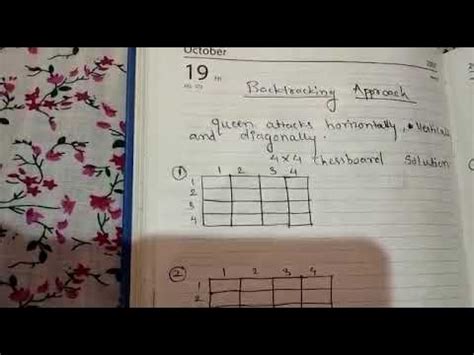 October
19 th
Backtracking Approach
queen attacks horizontally,
and diagonally.
4x4 chessboard Solution
① 1 2 3 4
1
2
3
4
② 1 2 3 4
1
2